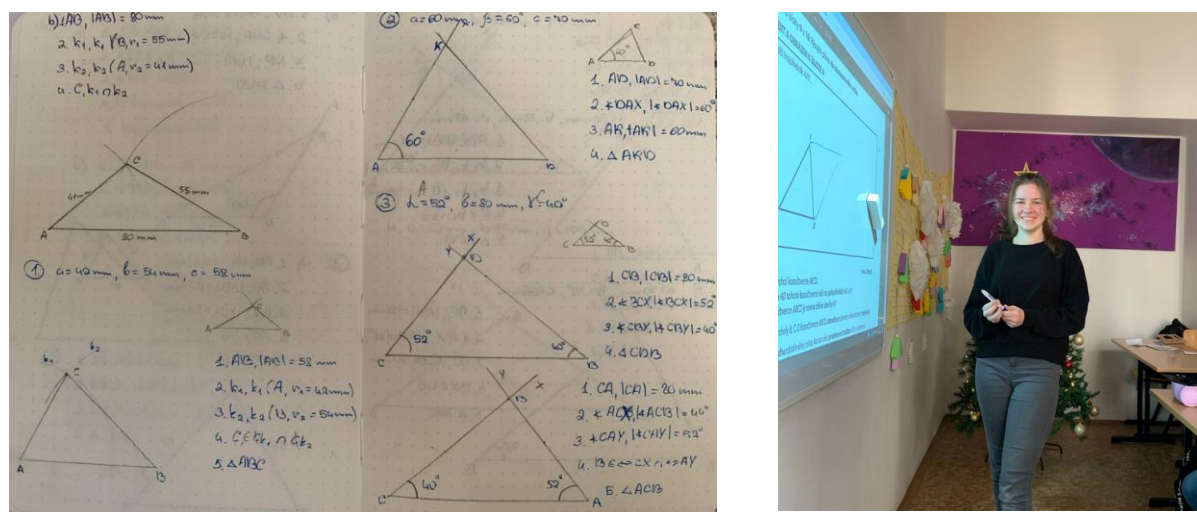 b) 1. AB, |AB| = 80 mm
2. k₁, k₁ (B, r₁ = 55 mm)
3. k₂, k₂ (A, r₂ = 41 mm)
4. C, k₁ ∩ k₂
C
41 mm
55 mm
A
80 mm
B
① a = 42 mm, b = 54 mm, c = 52 mm
A
B
k₁
k₂
C
A
B
1. AB, |AB| = 52 mm
2. k₁, k₁ (A, r₁ = 42 mm)
3. k₂, k₂ (B, r₂ = 54 mm)
4. C, C ∈ k₁ ∩ k₂
5. △ABC
② a = 60 mm, β = 60°, c = 70 mm
K
60°
A
D
K
A
60°
D
1. AD, |AD| = 70 mm
2. ∢DAX, |∢DAX| = 60°
3. AK, |AK| = 60 mm
4. △AKD
A
③ α = 52°, b = 80 mm, γ = 40°
X
Y
52°
40°
C
B
C
52°
40°
1. CB, |CB| = 80 mm
2. ∢BCX, |∢BCX| = 52°
3. ∢CBY, |∢CBY| = 40°
4. △CDB
Y
X
B
40°
52°
C
A
1. CA, |CA| = 80 mm
2. ∢ACX, |∢ACB| = 40°
3. ∢CAY, |∢CAY| = 52°
4. B ∈ ↔CX ∩ ↔AY
5. △ACB